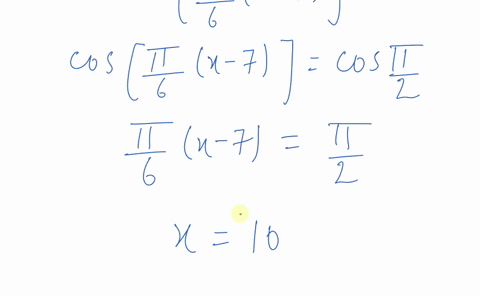 cos[π/6 (x-7)] = cos π/2
π/6 (x-7) = π/2
x = 10